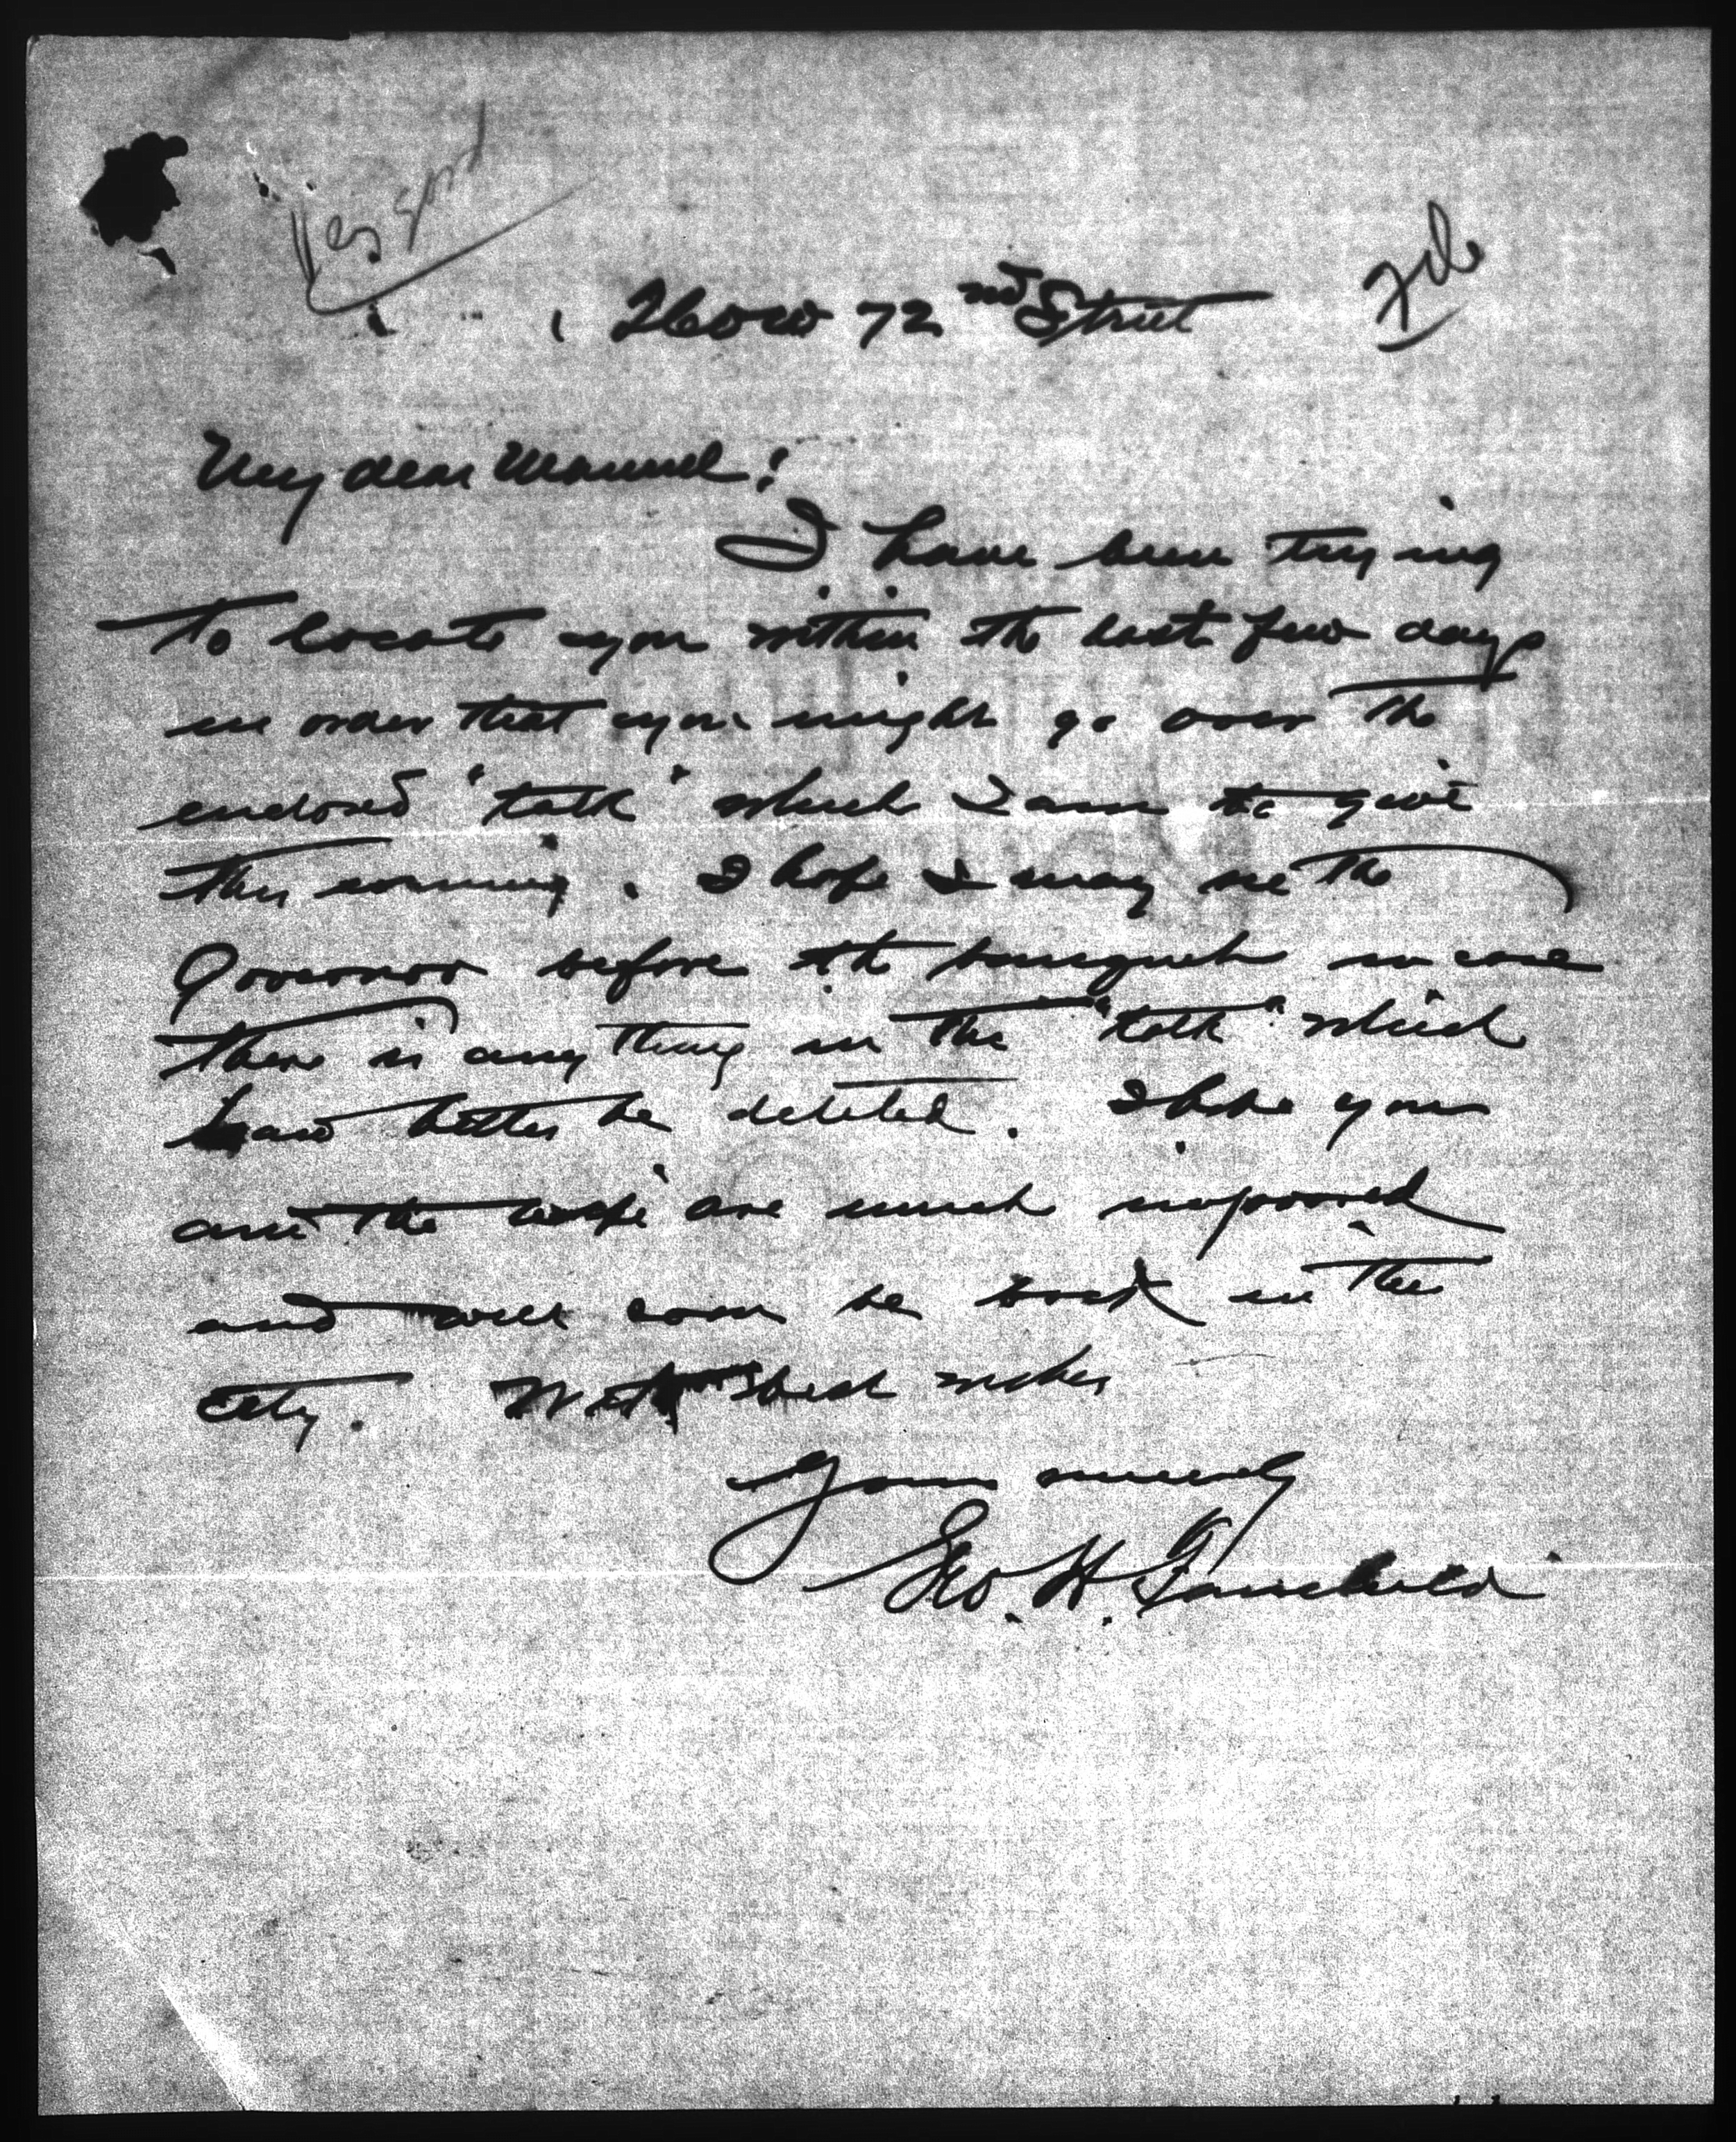 file
260 W 72nd Street
My dear Manuel:
I have been trying
to locate you within the last few days
in order that you might go over the
enclosed "talk" which I am to give
this evening. I hope I may see the
Governor before the banquet in case
there is anything in the "talk" which
had better be deleted. I hope you
and the wife are much improved
and will soon be back in the
city. With best wishes
Yours sincerely
Geo. H. Fairchild